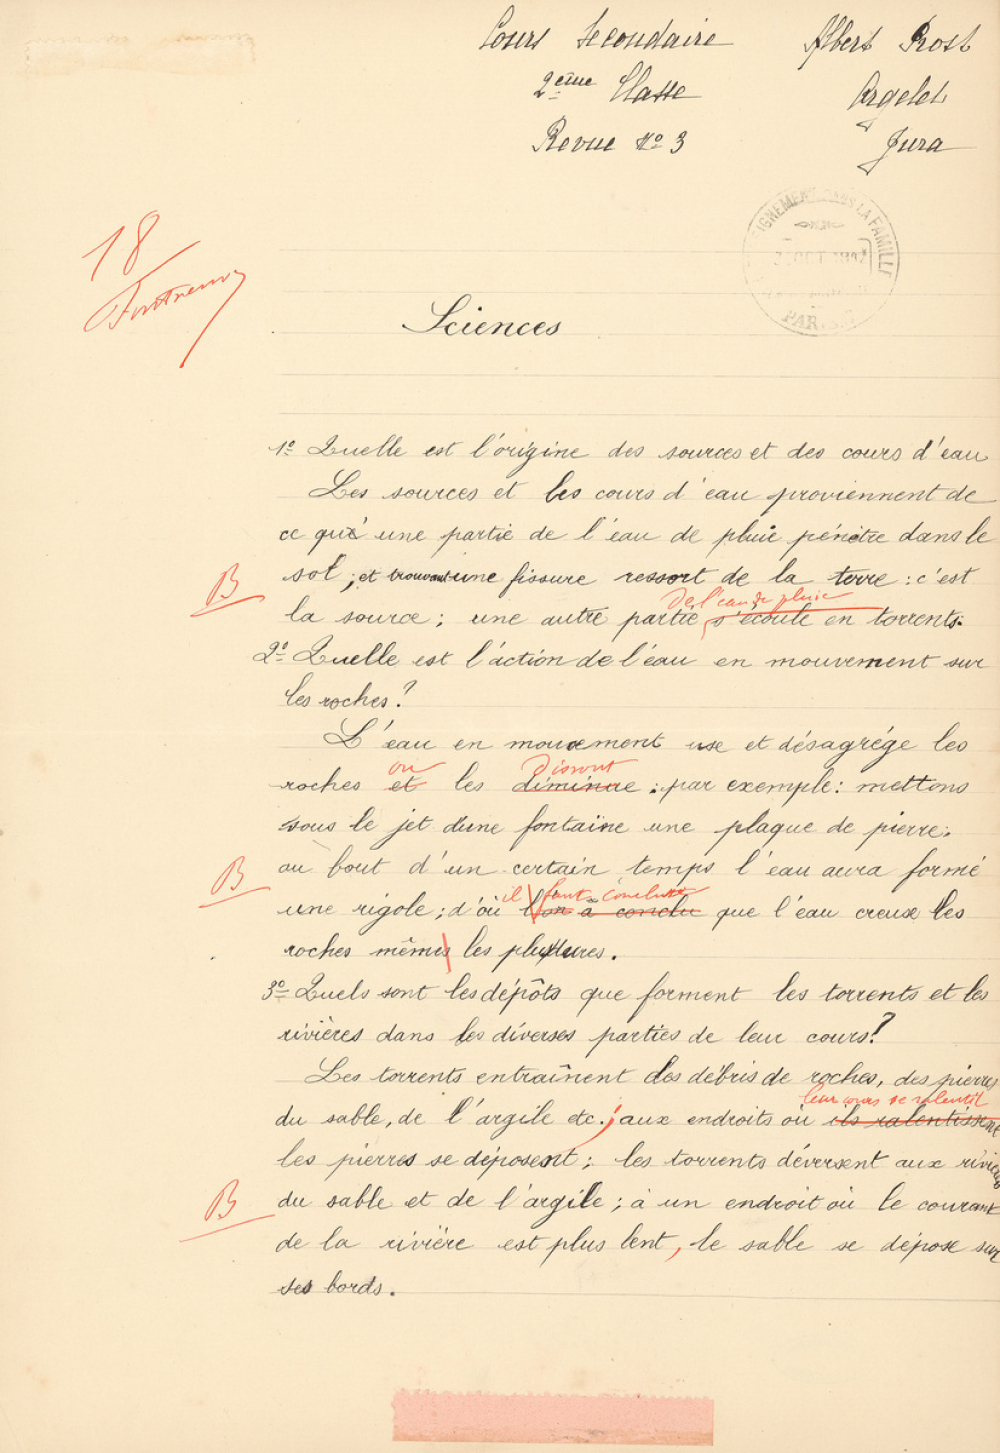 Cours Secondaire
2ème Classe
Revue No 3
Albert Prost
Orgelet
Jura
IGNEMENT DANS LA FAMILLE
PARIS
18
Sciences
1o Quelle est l'origine des sources et des cours d'eau
Les sources et les cours d'eau proviennent de
ce qu'une partie de l'eau de pluie pénètre dans le
sol ; et trouvant une fissure ressort de la terre : c'est
B
de l'eau de pluie
la source ; une autre partie s'écoule en torrents.
2o Quelle est l'action de l'eau en mouvement sur
les roches ?
L'eau en mouvement use et désagrége les
ou dissout
roches et les diminue : par exemple : mettons
sous le jet d'une fontaine une plaque de pierre.
au bout d'un certain temps l'eau aura formé
B
il faut conclure
une rigole ; d'où l'on a conclu que l'eau creuse les
roches mêmes les plus dures.
3o Quels sont les dépôts que forment les torrents et les
rivières dans les diverses parties de leur cours ?
Les torrents entraînent des débris de roches, des pierres
leur cours se ralentit
du sable, de l'argile etc. ; aux endroits où ils ralentissent
les pierres se déposent ; les torrents déversent aux rivières
B
du sable et de l'argile ; à un endroit où le courant
de la rivière est plus lent, le sable se dépose sur
ses bords.